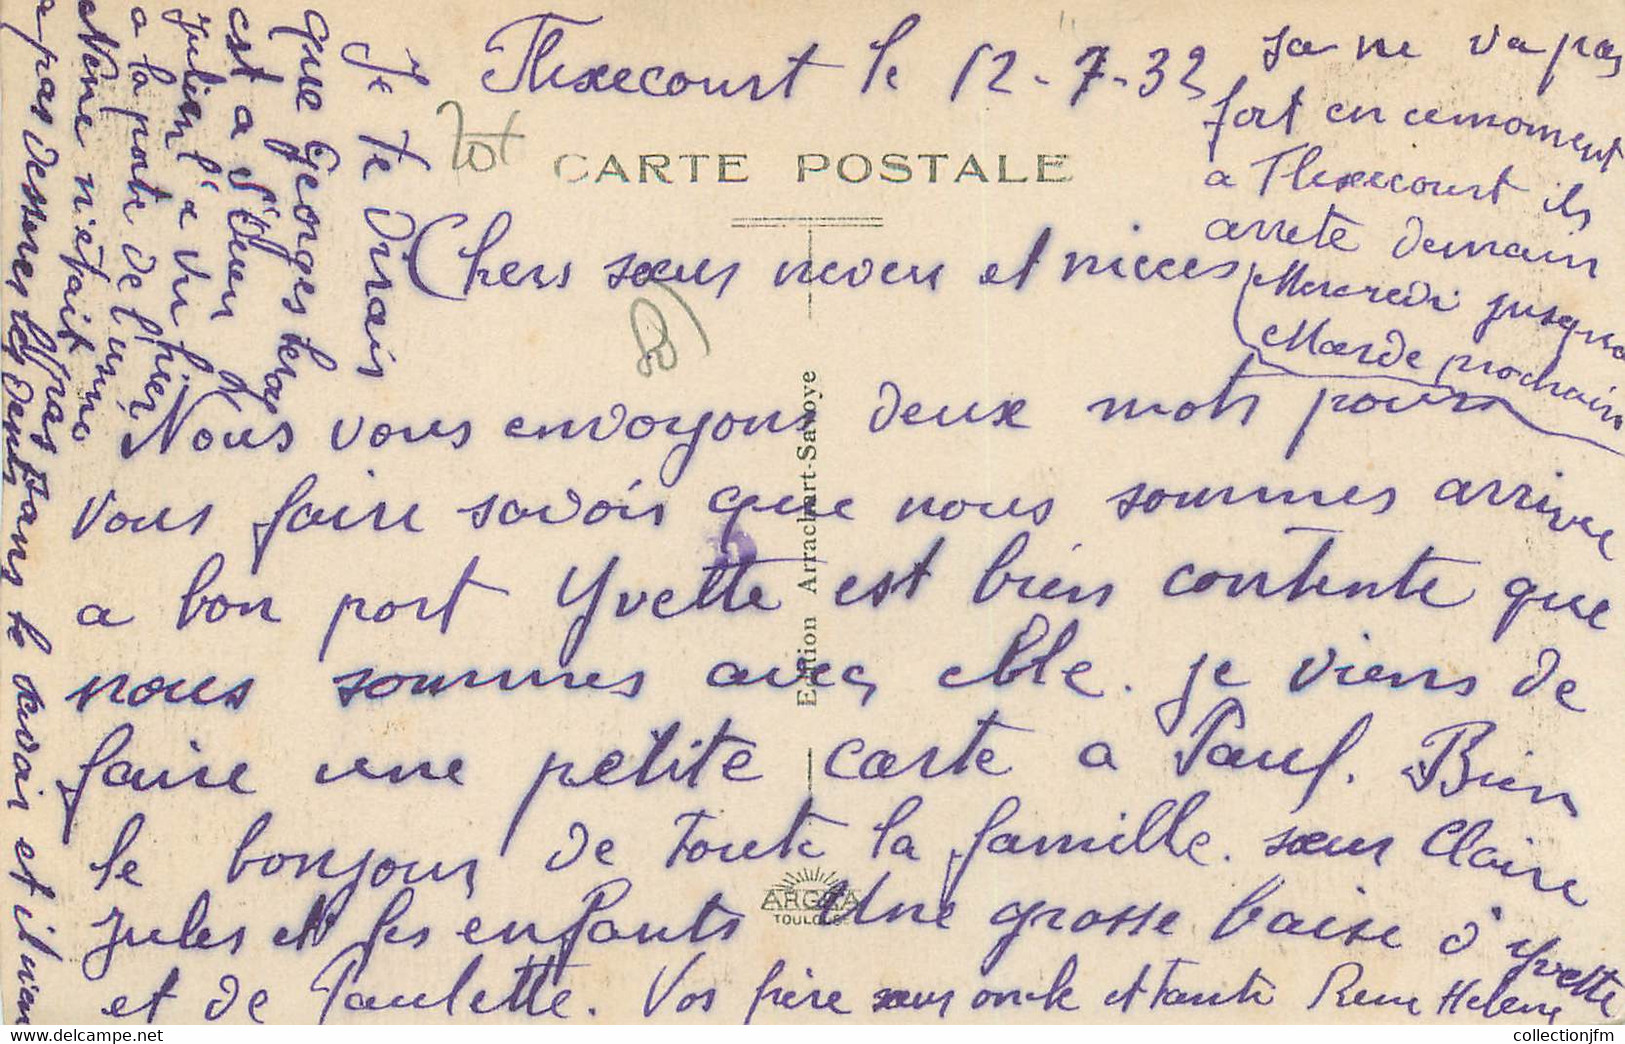 Flexecourt le 12-7-32
CARTE POSTALE
Chers sœur neveu et nieces
Nous vous envoyons deux mots pour
vous faire savoir que nous sommes arrive
a bon port Yvette est bien contente que
nous sommes avec elle. je viens de
faire une petite carte a Paul. Bien
le bonjour de toute la famille. sœur Claire
Jules et les enfants Une grosse baise d'Yvette
et de Paulette. Vos frère sœur oncle et tante Rene Helene
sa ne va pas
fort en cemoment
a Flexecourt ils
arrete demain
Mercredi jusqua
Marde prochain
Je te dirais
que Georges
est a
Julien l'a vu hier
a la porte de l'usine
Nene n'était
a pas desserer les dents
sans le savoir et il vien
Edition Arrachart-Savoye
ARGRA
TOULOUSE
collectionjfm